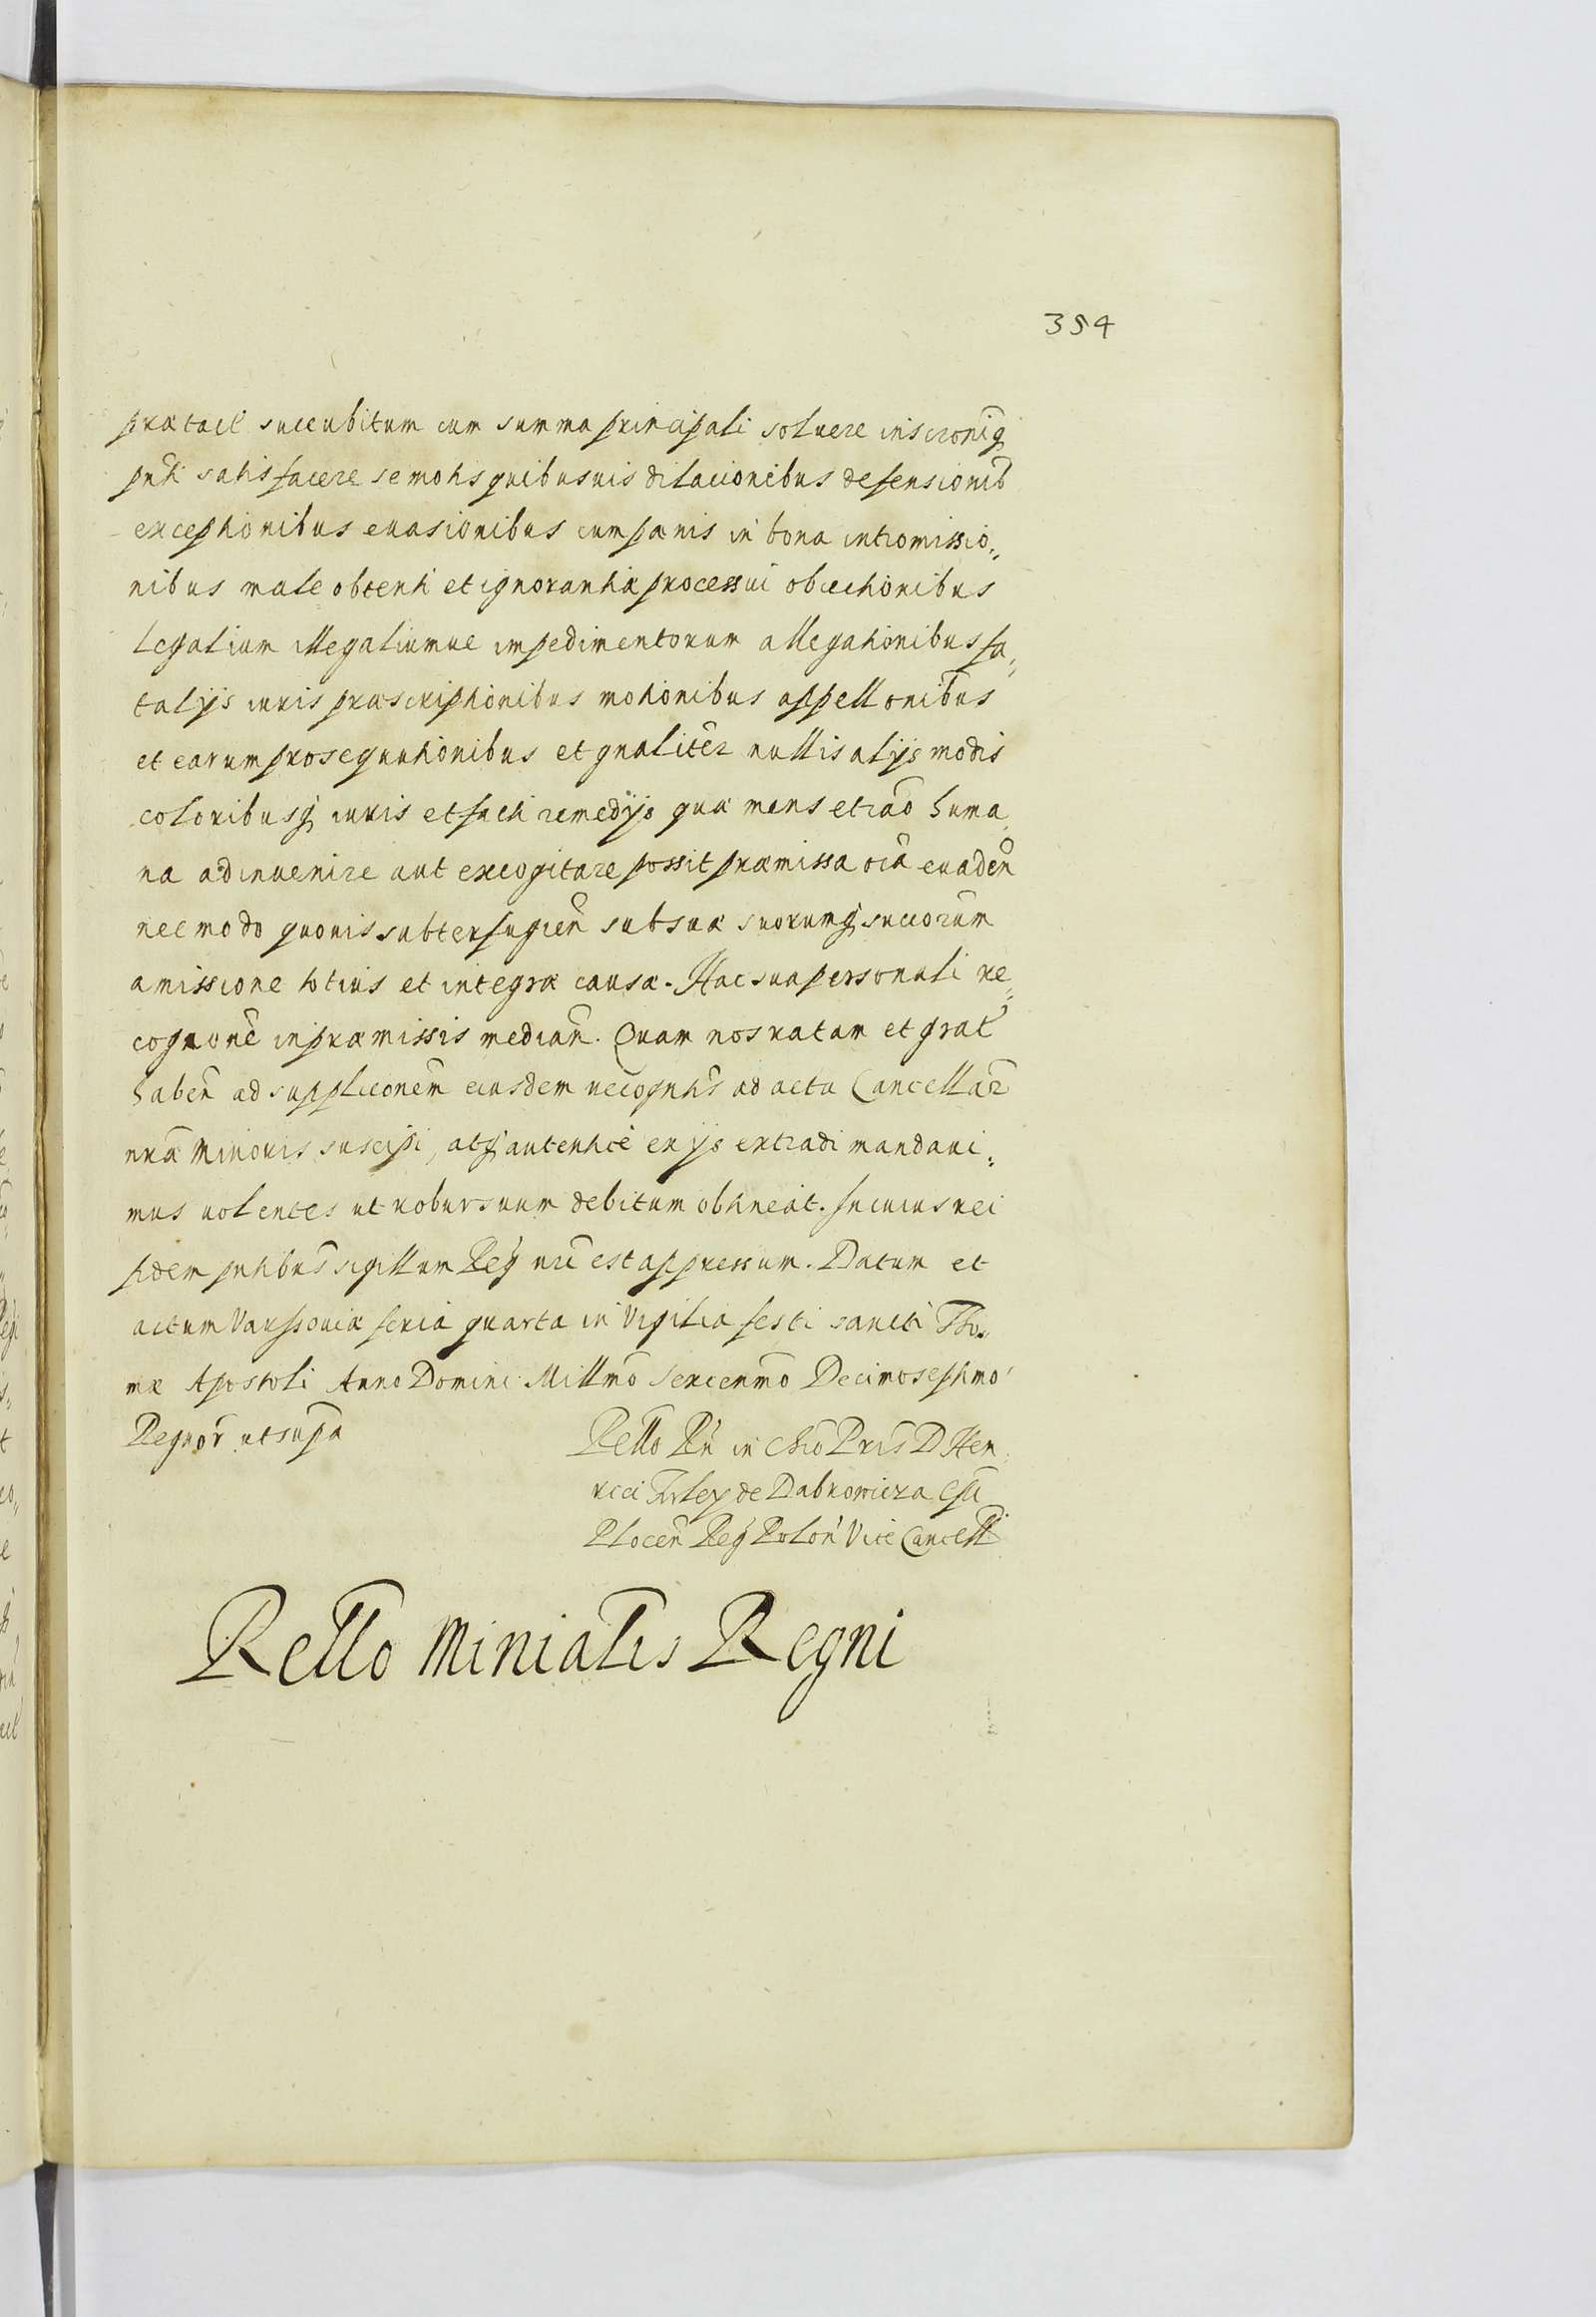 354
prætact succubitum cum summa principali soluere inscroniq
pnti satisfacere semotis quibusuis dilacionibus defensionib
exceptionibus euasionibus cumpanis in bona intromissio„
nibus male obtenti et ignorantiæ processui obiectionibus
legalium illegaliumue impedimentorum allegationibus fa„
talijs iuris præscriptionibus motionibus appellonibus
et earum prosequutionibus et gnaliter nullis alijs modis
coloribusq iuris et facti remedijs quæ mens et rao huma„
na adinuenire aut excogitare possit præmissa oia euaden
nec modo quouis subterfugien sub suæ suorumq succorum
amissione totius et integræ causæ. Hac sua personali re„
cognone in præmissis median. Quam nos ratam et grat
haben ad supplicconem eiusdem recogntis ad acta Cancellar
nræ Minoris suscipi, atq autentice ex ijs extradi mandaui„
mus uolentes ut robur suum debitum obtineat. In cuius rei
fidem pntibus sigillum Reg nri est appressum. Datum et
actum Varssouiæ feria quarta in Vigilia festi sancti Tho„
mæ Apostoli Anno Domini Millmo Sexcenmo Decimoseptimo
Regnor ut supa
Rello Rn in Chro Pris D Hen„
rici Firley de Dabrowicza Epi
Plocen Reg Polon Vice Cancell
Rello Minialis Regni